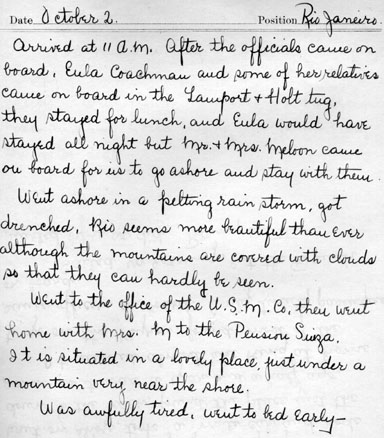 Date October 2. Position Rio Janeiro.
Arrived at 11 A.M. After the officials came on
board, Eula Coachman and some of her relatives
came on board in the Lamport & Holt tug,
they stayed for lunch, and Eula would have
stayed all night but Mr. & Mrs. Meloon came
on board for us to go ashore and stay with them.
Went ashore in a pelting rain storm, got
drenched, Rio seems more beautiful than ever
although the mountains are covered with clouds
so that they can hardly be seen.
Went to the office of the U.S.M. Co, then went
home with Mrs. M to the Pension Suiza.
It is situated in a lovely place, just under a
mountain very near the shore.
Was awfully tired, went to bed early—